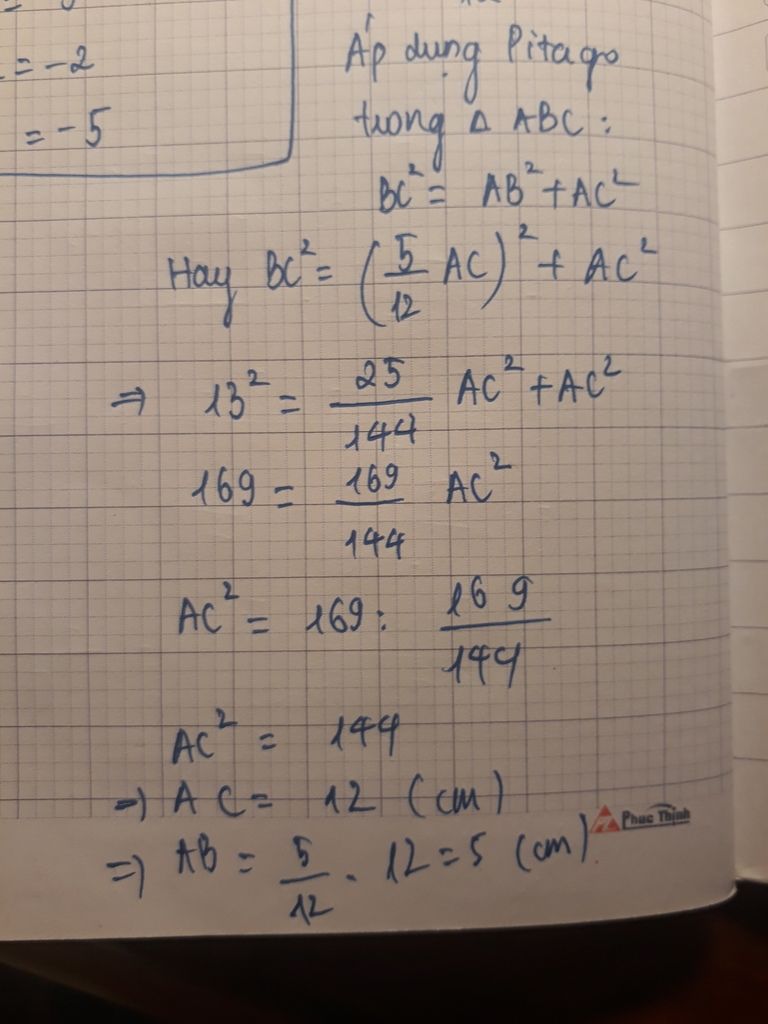 = -2
= -5
Áp dụng Pitago
trong Δ ABC:
BC² = AB² + AC²
Hay BC² = (5/12 AC)² + AC²
⇒ 13² = 25/144 AC² + AC²
169 = 169/144 AC²
AC² = 169 : 169/144
AC² = 144
⇒ AC = 12 (cm)
⇒ AB = 5/12 . 12 = 5 (cm)
Phuc Thinh